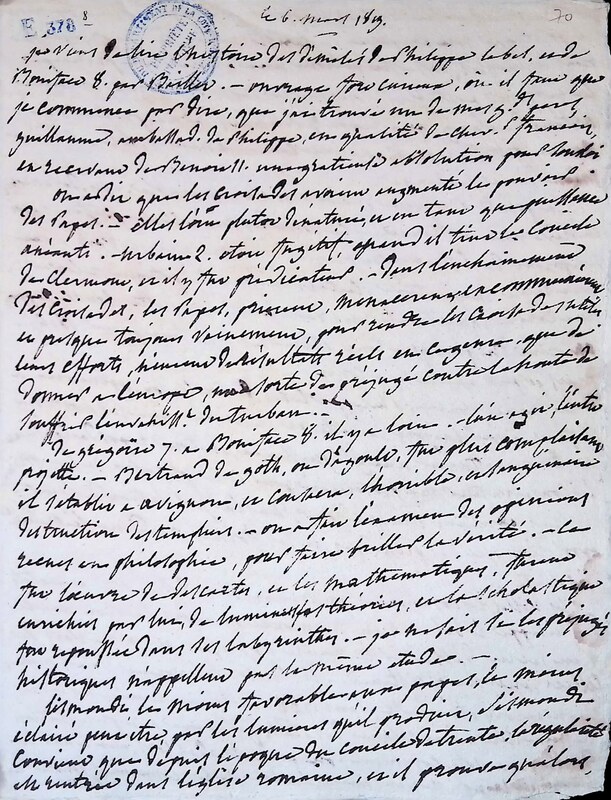 E 378 8
le 6. mars 1819.
70
je viens de lire l'histoire des démêlés de Philippe le bel, et de
Boniface 8. par Baillet. – ouvrage fort curieux, où il faut que
je commence par dire, que j'ai trouvé un de mes g.ds peres
guillaume, ambassad. de Philippe, en qualité de chev. français,
en recevant de Benoit 11. une gratieuse absolution pour
on a dit que les croisades avoient augmenté le pouvoir
des Papes. – elles l'ont plutot dénaturé, et en tant que puissance
anéanti. – urbain 2. etoit fugitif, quand il tint le Concile
de Clermont, et il y fut prédicateur. – dans l'enchainement
des Croisades, les Papes, prièrent, menacerent,
et presque toujours vainement, pour rendre les Croisades utiles
leurs efforts, n'eurent de résultats réels en ce genre, que de
donner a l'europe, une sorte de préjugé contre la honte de
souffrir l'envahiss.t du turban. –
de grégoire 7. a Boniface 8. il y a loin. – l'un agit, l'autre
projette. – Bertrand de goth, ou fut plus complaisant
il s'établit a avignon, et consacra, l'horrible, et sanguinaire
destruction des templiers. – on a fait l'examen des opinions
recues en philosophie, pour faire briller la vérité. – ce
fut l'œuvre de descartes, et les mathematiques, furent
enrichies par lui, de lumineuses théories, et la scholastique
fut repoussée dans ses labyrinthes. – je ne sais si les préjugés
historiques n'appellent pas la même etude. –
Sismondi le moins favorable aux papes, le moins
éclairé peut être par les lumieres qu'il produit, Sismondi
Convient que depuis l'epoque du concile de trente, la régularité
est rentrée dans l'église romaine, et il prouve qu'alors,